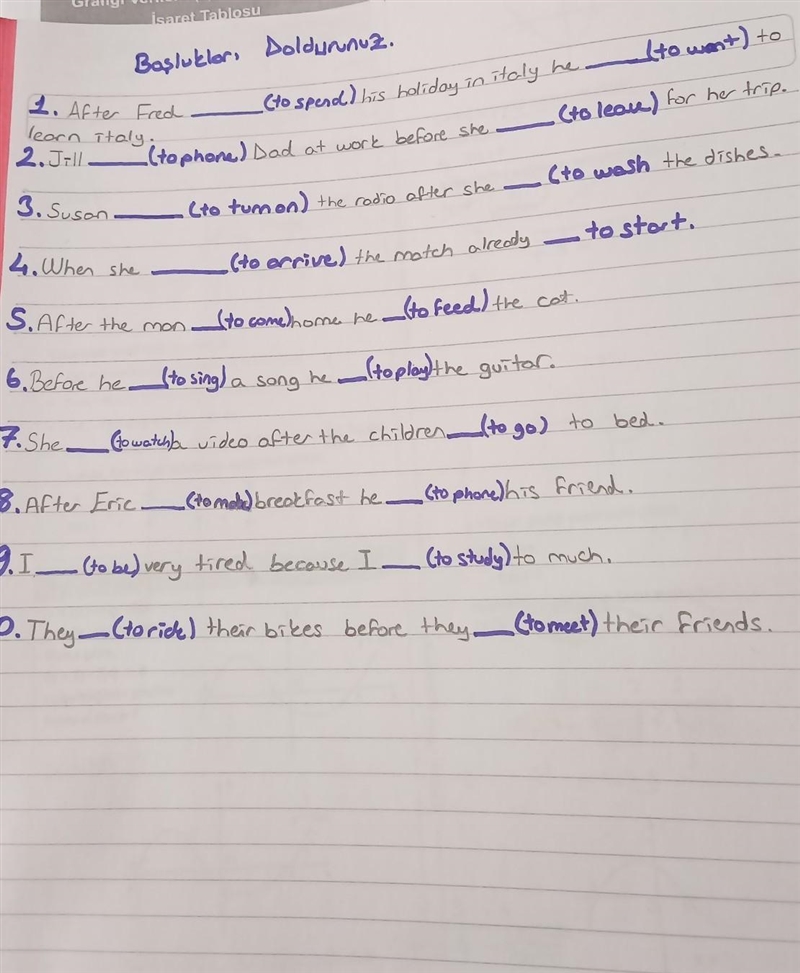 İşaret Tablosu
Boşlukları Doldurunuz.
1. After Fred ______ (to spend) his holiday in italy he ______ (to want) to
learn italy.
2. Jill ______ (to phone) Dad at work before she ______ (to leave) for her trip.
3. Susan ______ (to turn on) the radio after she ___ (to wash the dishes.
4. When she ______ (to arrive) the match already ___ to start.
5. After the man ___ (to come) home he ___ (to feed) the cat.
6. Before he ___ (to sing) a song he ___ (to play) the guitar.
7. She ___ (to watch) a video after the children ___ (to go) to bed.
8. After Eric ___ (to make) breakfast he ___ (to phone) his friend.
9. I ___ (to be) very tired because I ___ (to study) to much.
0. They ___ (to ride) their bikes before they ___ (to meet) their friends.